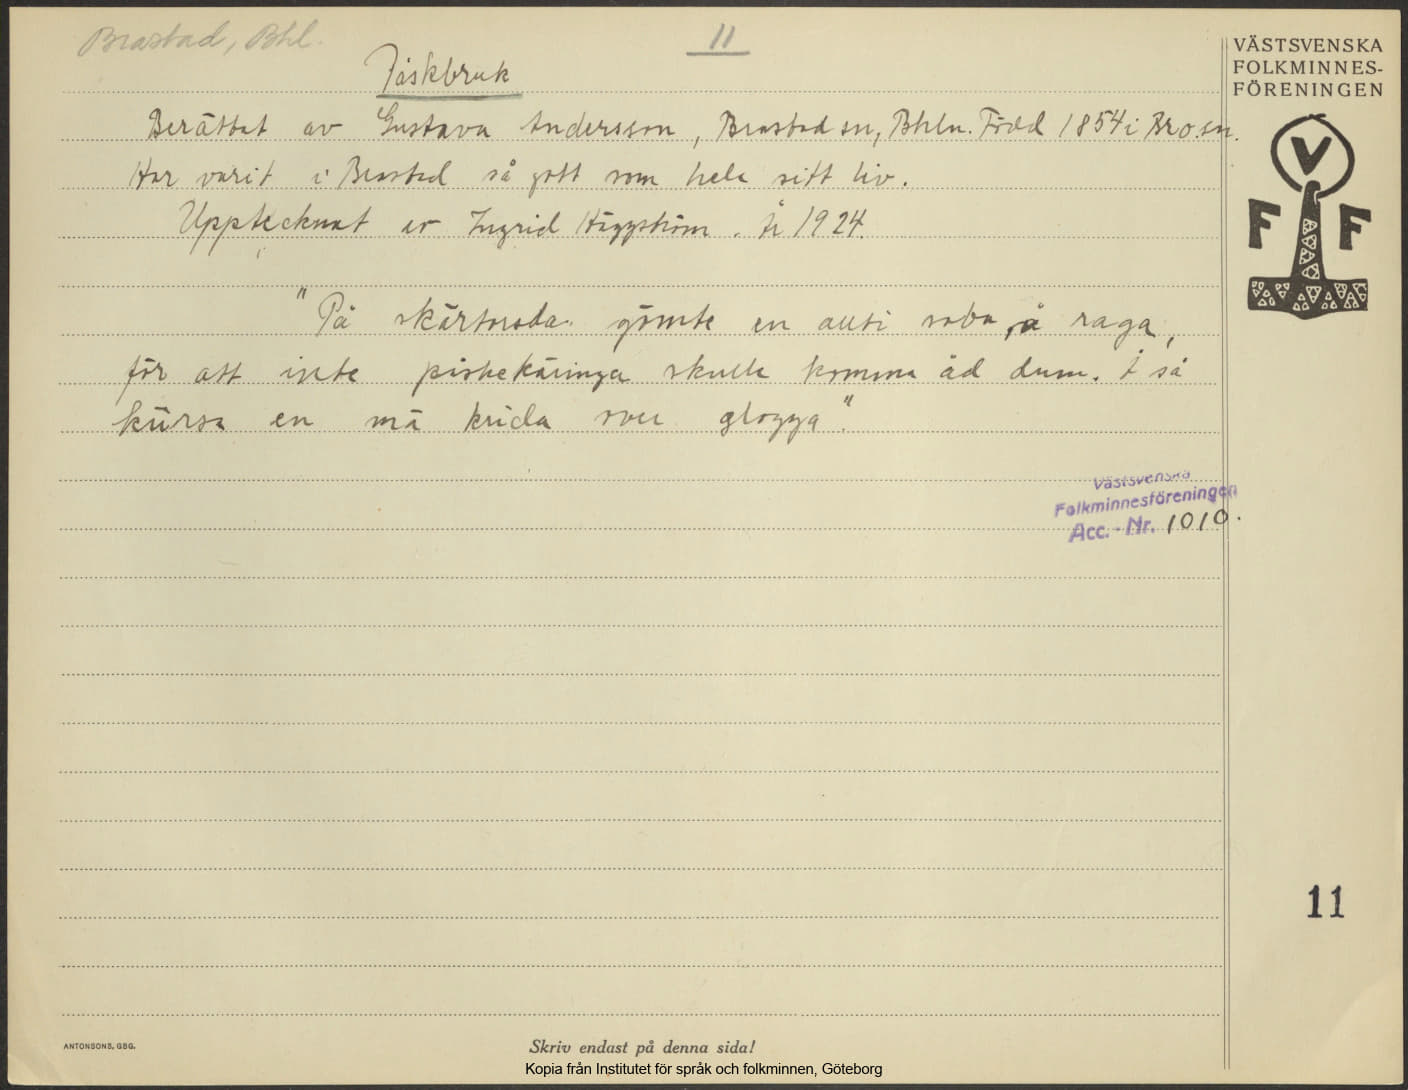 Brastad, Bhl.
11
Påskbruk
Berättat av Gustava Andersson, Brastad sn, Bhln. Född 1854 i Bro sn.
Har varit i Brastad så gott som hela sitt liv.
Upptecknat av Ingrid Häggström. År 1924.
"På skärtorsda gömte en allti soba, å raga,
för att inte påskekäringa skulle komma åd dum. Å så
kürsa en mä krida over glogga".
VÄSTSVENSKA
FOLKMINNES-
FÖRENINGEN
V
F F
Västsvenska
Folkminnesföreningen
Acc.-Nr. 1010.
11
ANTONSONS, GBG.
Skriv endast på denna sida!
Kopia från Institutet för språk och folkminnen, Göteborg